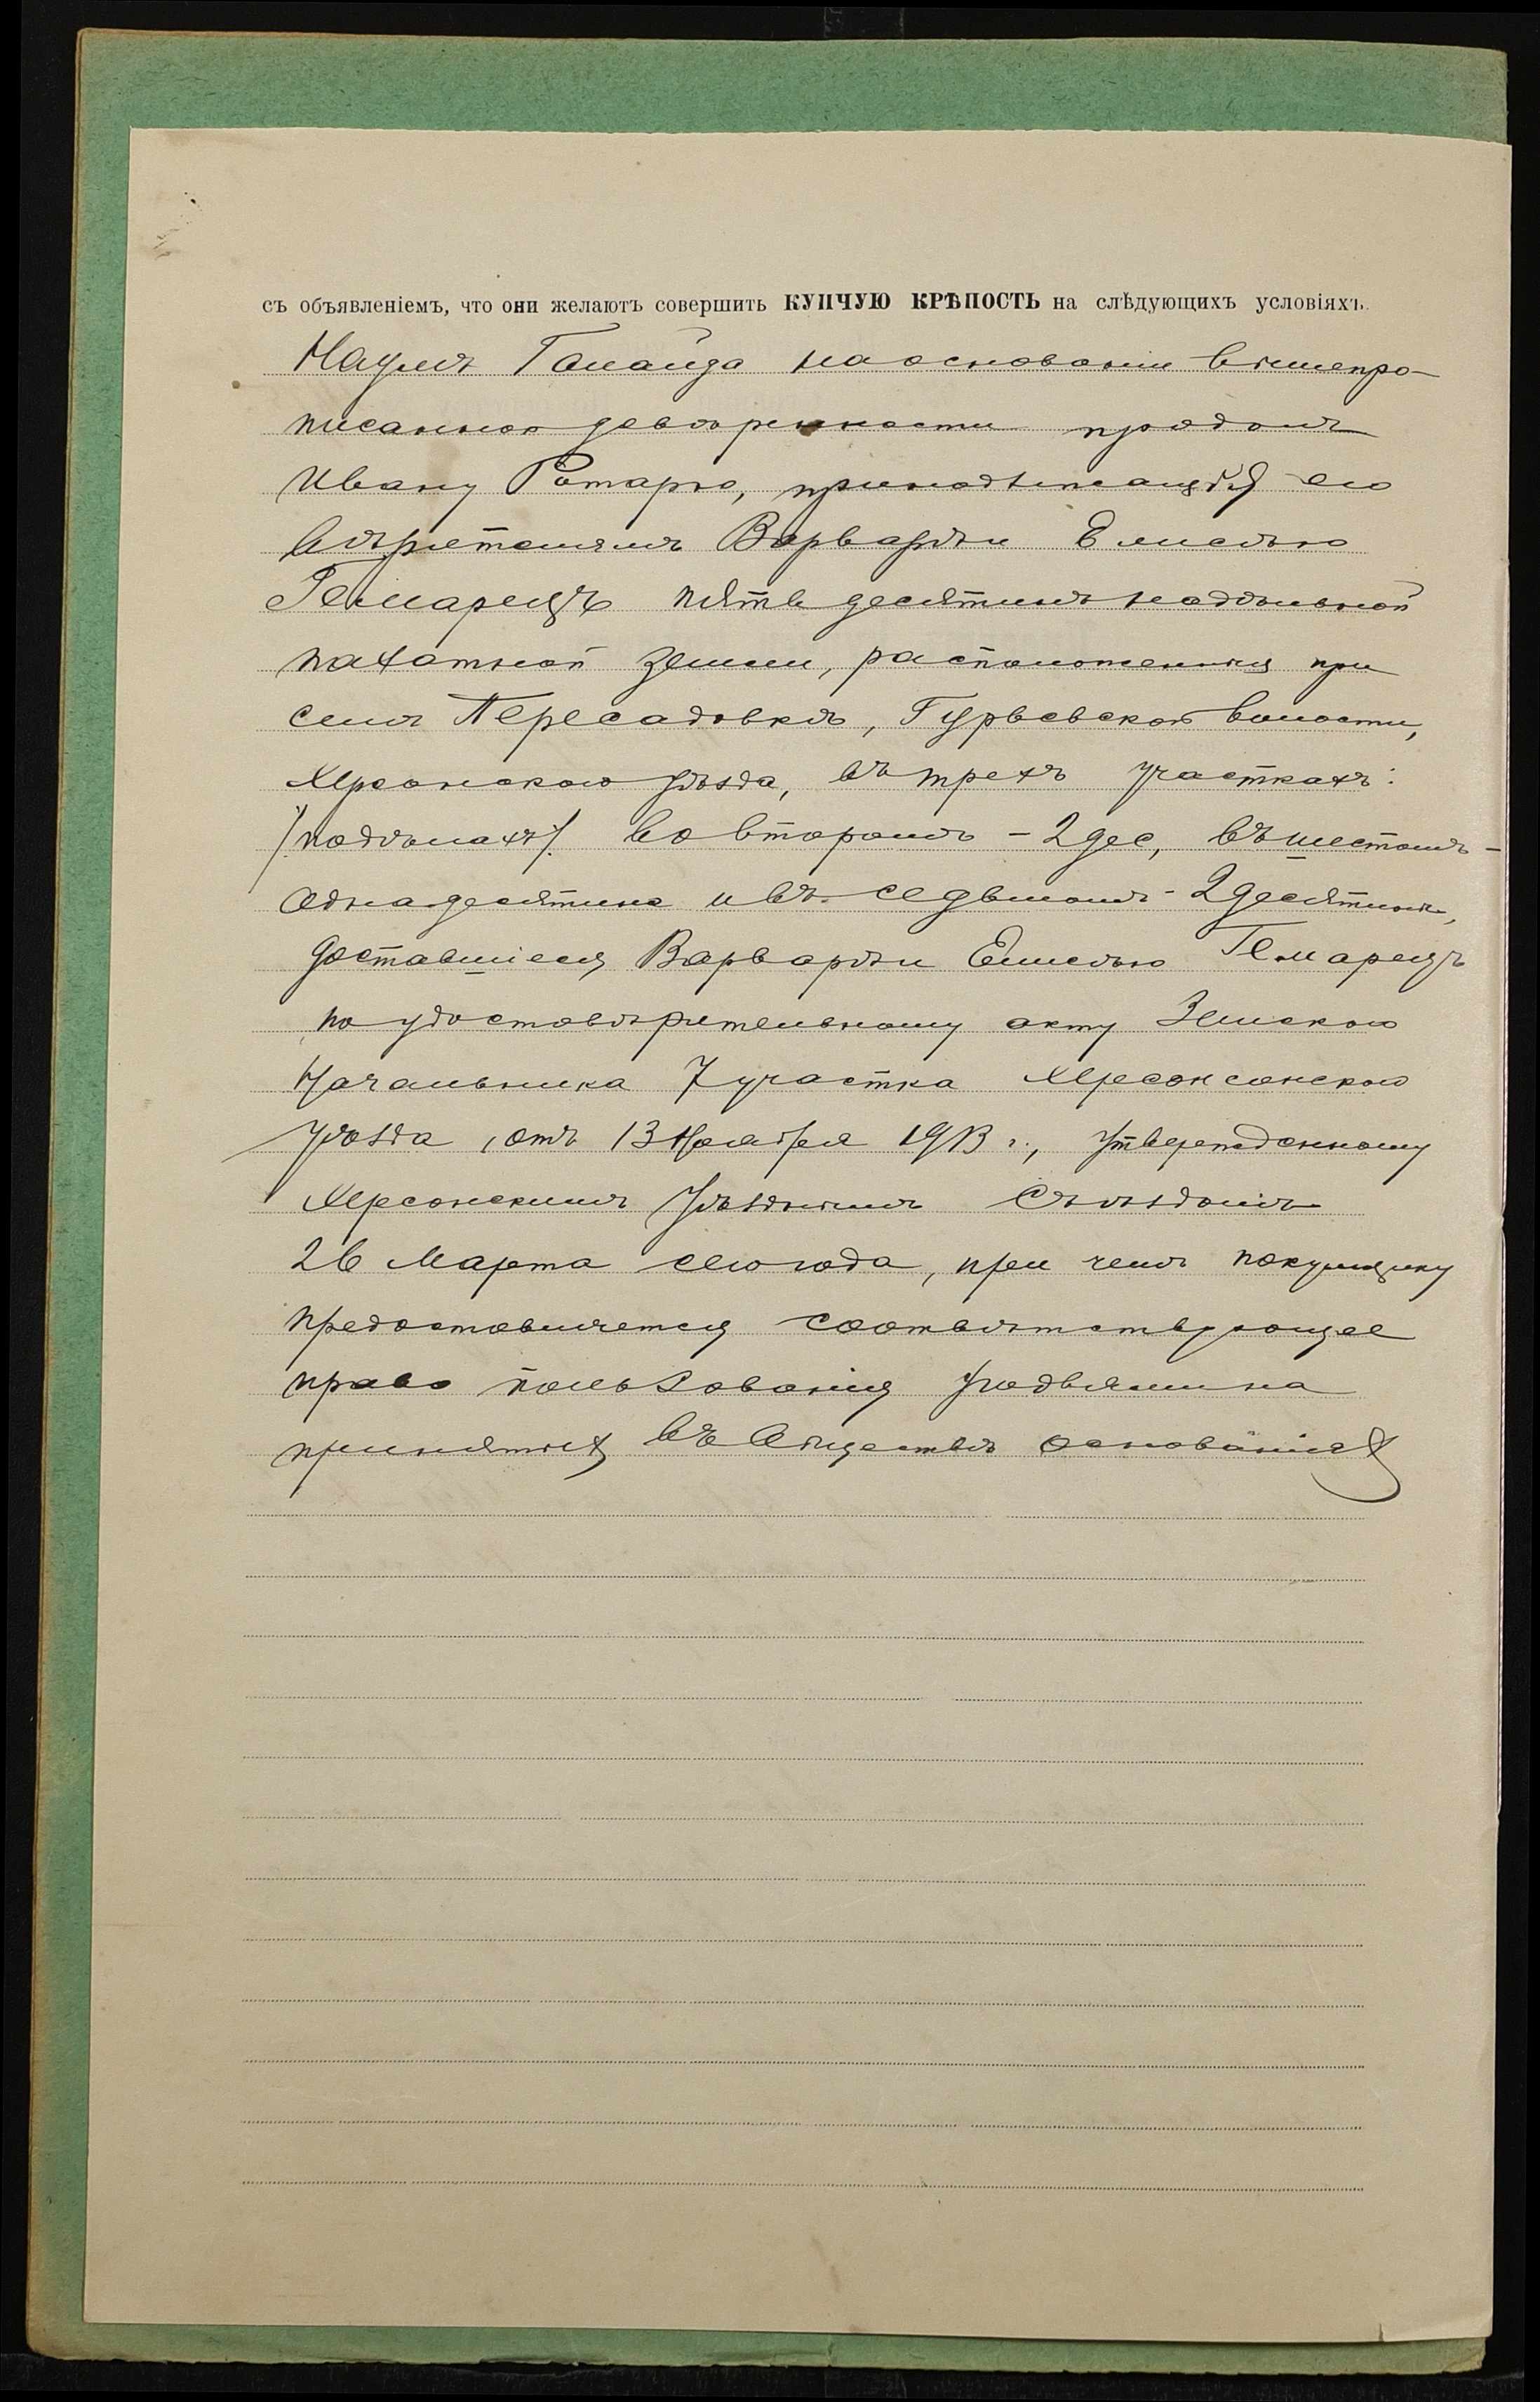 съ объявленіемъ, что они желаютъ совершить КУПЧУЮ КРѢПОСТЬ на слѣдующихъ условіяхъ.
Наумъ на основаніи вышепро-
писанной довѣренности продалъ
Ивану Ротарю, принадлежащія его
вѣрительницѣ Варварѣ
пять десятинъ надѣльной
пахатной земли, расположенныя при
селѣ Пересадовкѣ, Гурьевской волости,
Херсонскаго уѣзда, въ трехъ участкахъ:
/подѣлахъ/. во второмъ - 2 дес, въ шестомъ -
одна десятина и въ седьмомъ - 2 десятины,
доставшіеся Варварѣ
по удостовѣрительному акту Земскаго
Начальника 7 участка Херсонсонскаго
уѣзда, отъ 13 Ноября 1913 г., утвержденному
Херсонскимъ Уѣзднымъ Съѣздомъ
26 Марта сего года, при чемъ покупщику
предоставляется соотвѣтствующее
право пользованія угодьями на
принятыхъ въ Обществѣ основаніяхъ